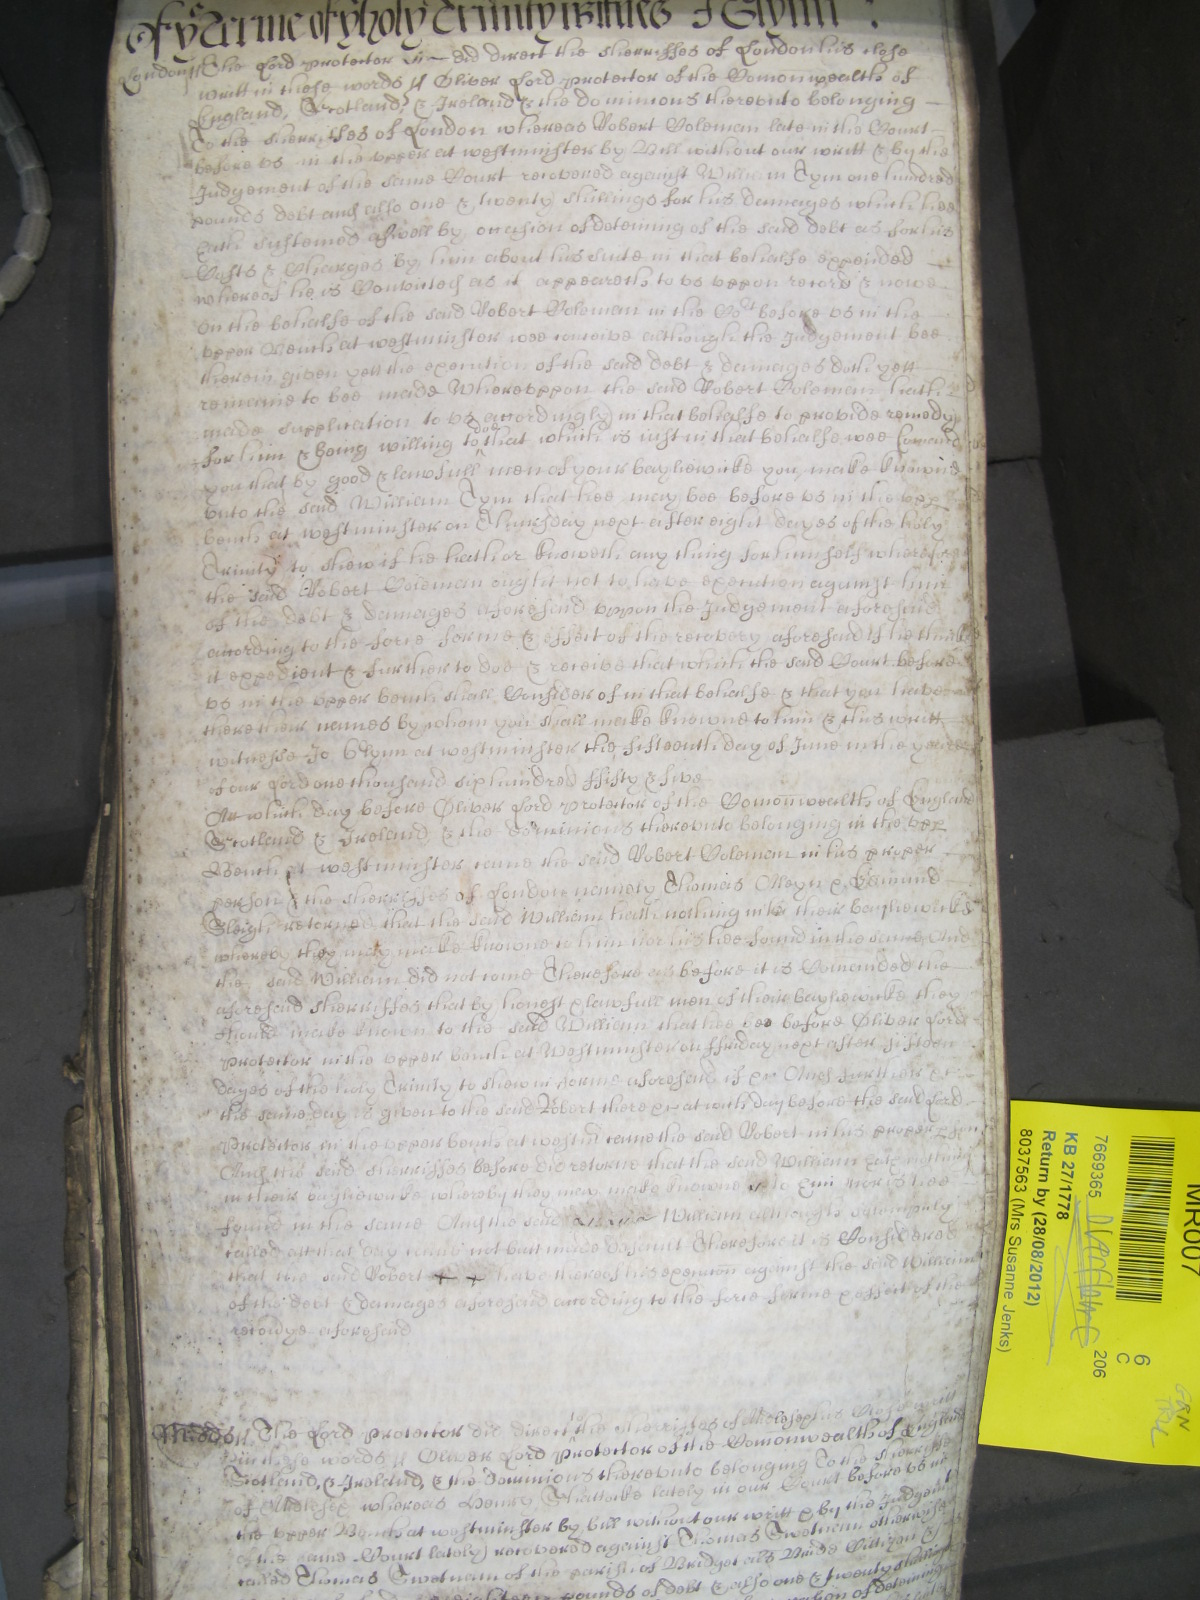 Of ye Terme of ye holy Trinity Witnes J Glynn
London ss The Lord Protector &c did direct the Sherriffes of London his close
writt in these words ss Oliver Lord Protector of the Comonwealth of
England, Scotland, & Ireland & the dominions thereunto belonging
To the Sherriffes of London whereas Robert Coleman late in the Court
before us in the upper at westminster by Bill without our writt & by the
Judgement of the same Court recovered against William Tym one hundred
pounds debt and also one & twenty shillings for his damages which hee
hath susteined aswell by occasion of deteining of the said debt as for his
Costs & Charges by him about his suite in that behalfe expended
whereof he is Convicted as it appeareth to us uppon record & nowe
on the behalfe of the said Robert Coleman in the Cort before us in the
upper Bench at westminster wee conceive although the Judgement bee
therein given yett the execution of the said debt & damages doth yett
remaine to bee made Whereuppon the said Robert Coleman hath
made supplication to us accordingly in that behalfe to provide remedy
for him & being willing to doe that which is iust in that behalfe wee Comand
you that by good & lawfull men of your bayliewicke you make knowne
unto the said William Tym that hee may bee before us in the upp
bench at westminster on Thursday next after eight dayes of the holy
Trinity to shew if he hath or knoweth any thing for himselfe wherefore
the said Robert Coleman ought not to have execution against him
of the debt & damages aforesaid uppon the Judgement aforesaid
according to the force forme & effect of the recovery aforesaid if he thinke
it expedient & further to doe & receive that which the said Court before
us in the upper bench shall Consider of in that behalfe & that you have
there their names by whom you shall make knowne to him & this writt
witnesse Jo Glynn at westminster the fifteenth day of June in the yeare
of our Lord one thousand six hundred fifty & five
Att which day before Oliver Lord Protector of the Comonwealth of England
Scotland & Ireland & the dominions thereunto belonging in the upp
Bench at westminster came the said Robert Coleman in his proper
person & the Sherriffes of London namely Thomas Aleyn & Edmund
Sleigh returned that the said William hath nothing in their bayliewicke
whereby they may make knowne to him nor is hee found in the same And
the said William did not come Therefore as before it is Comanded the
aforesaid Sherriffes that by honest & lawfull men of their bayliewicke they
should make known to the said William that hee bee before Oliver Lord
Protector in the upper bench at Westminster on ffriday next after fifteen
dayes of the holy Trinity to shew in forme aforesaid if &c And further &c
the same day is given to the said Robert there &c at wch day before the said Lord
Protector in the upper bench at westmr came the said Robert in his proper person
And the said Sherriffes before did returne that the said William hath nothing
in their bayliewicke whereby they may make knowne to him nor is hee
found in the same And the said William although solempnly
called att that day came not but made default Therefore it is Considered
that the said Robert have thereof his execution against the said William
of the debt & damages aforesaid according to the force forme & effect of the
recovery aforesaid
Midds ss The Lord Protector did direct the Sherriffes of Midlesex his close writt
in these words ss Oliver Lord Protector of the Comonwealth of England
Scotland, & Ireland, & the Dominions thereunto belonging To the Sherriffes
of Midlesex whereas Henry lately in our Court before us in
the upper Bench at westminster by bill without our writt & by the Judgemt
of the same Court lately recovered against Thomas Swetnam otherwise
called Thomas Swetnam of the parish of Bridget als Brides Cittizen &
pounds of debt & also one & twenty shillings
MR007
6
C
7669365
206
KB 27/1778
Return by (28/08/2012)
8037563 (Mrs Susanne Jenks)